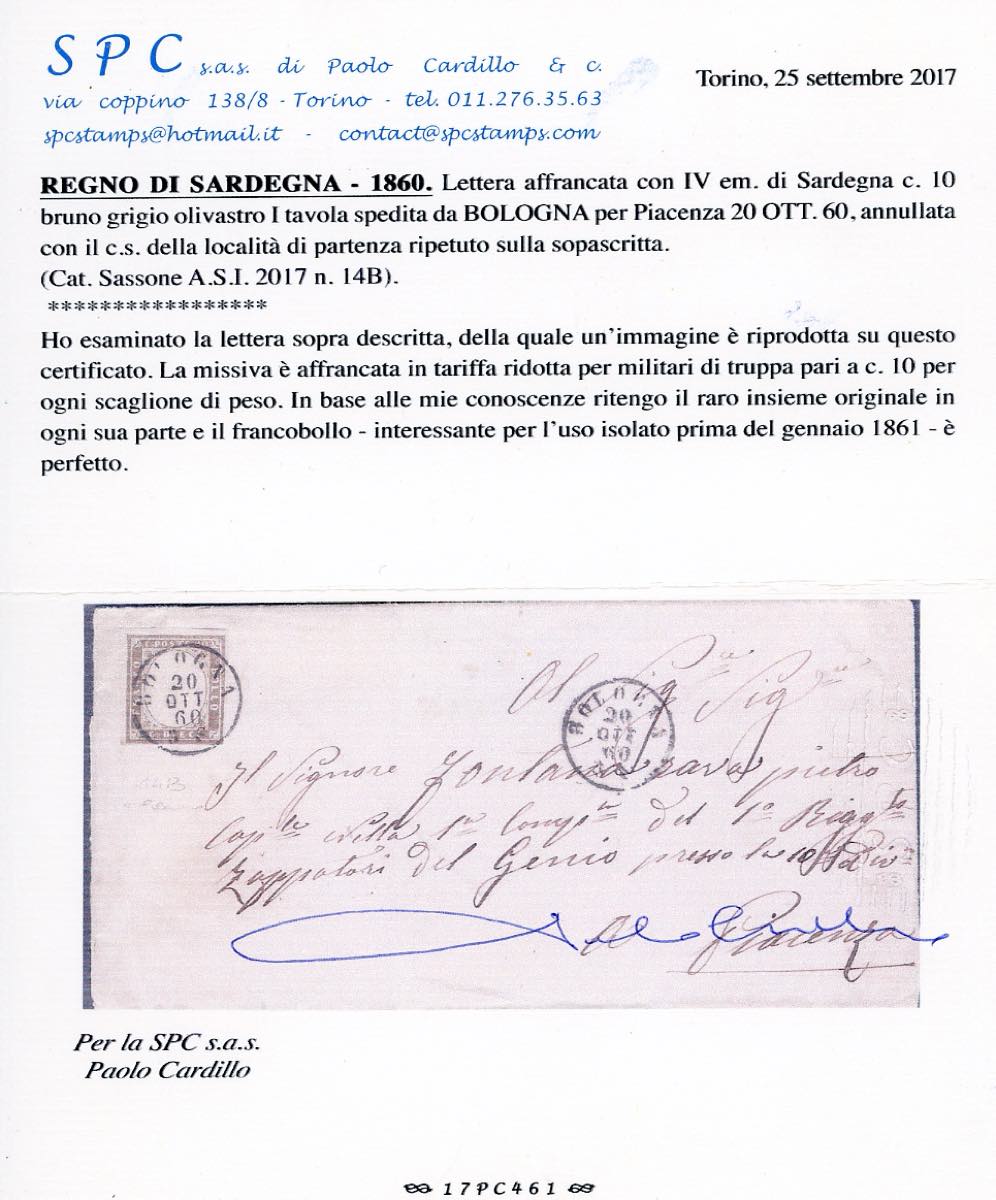 SPC s.a.s. di Paolo Cardillo & c.
via coppino 138/8 - Torino - tel. 011.276.35.63
spcstamps@hotmail.it - contact@spcstamps.com
Torino, 25 settembre 2017
REGNO DI SARDEGNA - 1860. Lettera affrancata con IV em. di Sardegna c. 10
bruno grigio olivastro I tavola spedita da BOLOGNA per Piacenza 20 OTT. 60, annullata
con il c.s. della località di partenza ripetuto sulla sopascritta.
(Cat. Sassone A.S.I. 2017 n. 14B).
*****************
Ho esaminato la lettera sopra descritta, della quale un'immagine è riprodotta su questo
certificato. La missiva è affrancata in tariffa ridotta per militari di truppa pari a c. 10 per
ogni scaglione di peso. In base alle mie conoscenze ritengo il raro insieme originale in
ogni sua parte e il francobollo - interessante per l'uso isolato prima del gennaio 1861 - è
perfetto.
BOLOGNA
20
OTT
60
Al Sig.
BOLOGNA
20
OTT
60
Il Signore Fontana pietro
1a Comp del 1o
Zappatori del Genio presso la
A Piacenza
Per la SPC s.a.s.
Paolo Cardillo
17PC461